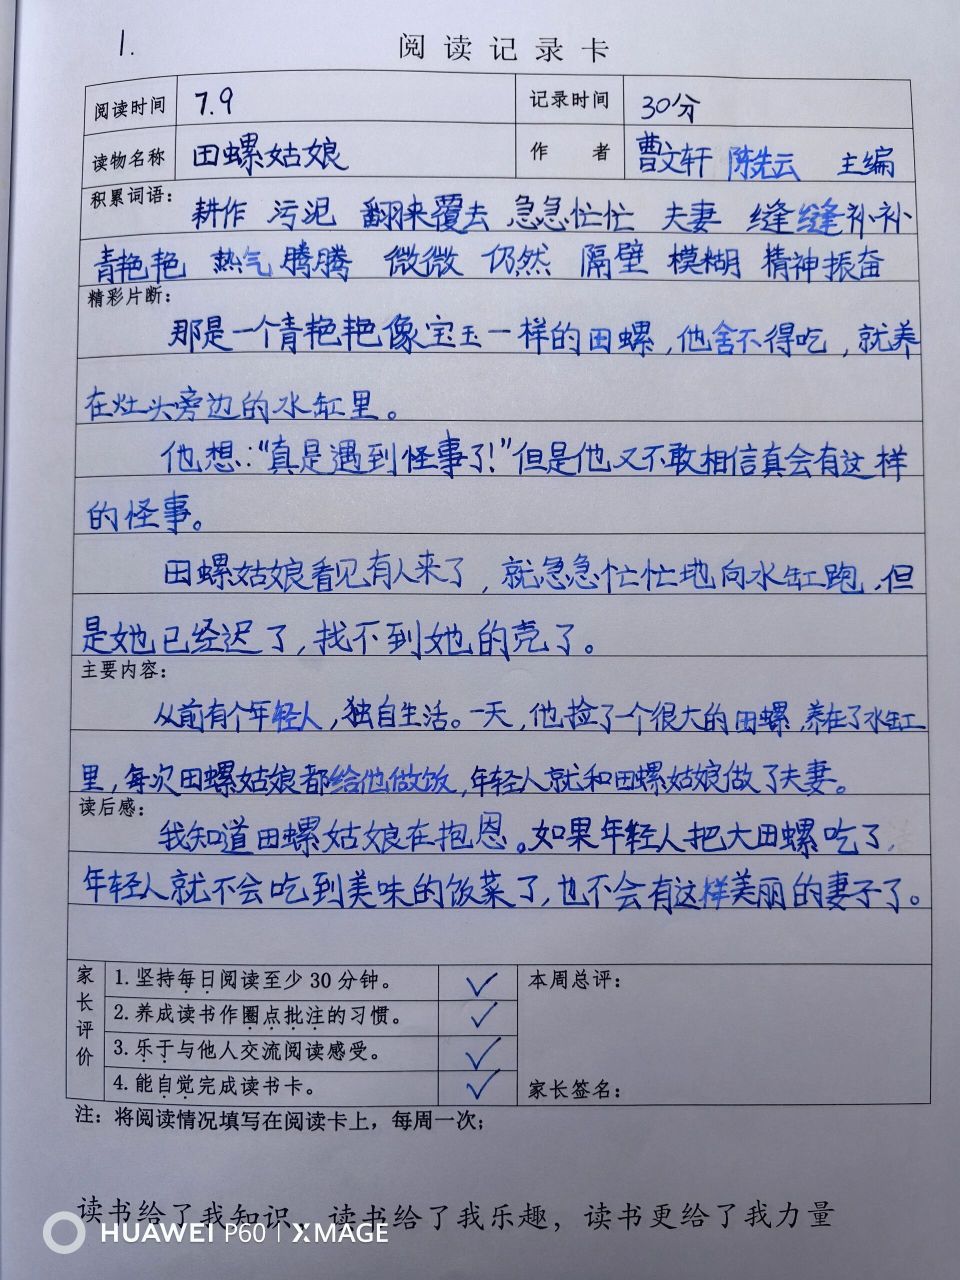 1.
阅读记录卡
阅读时间 7.9 记录时间 30分
读物名称 田螺姑娘 作者 曹文轩 陈先云 主编
积累词语：耕作 污泥 翻来覆去 急急忙忙 夫妻 缝缝补补
青艳艳 热气腾腾 微微 仍然 隔壁 模糊 精神振奋
精彩片断：
那是一个青艳艳像宝玉一样的田螺，他舍不得吃，就养
在灶头旁边的水缸里。
他想：“真是遇到怪事了！”但是他又不敢相信真会有这样
的怪事。
田螺姑娘看见有人来了，就急急忙忙地向水缸跑，但
是她已经迟了，找不到她的壳了。
主要内容：
从前有个年轻人，独自生活。一天，他捡了一个很大的田螺，养在了水缸
里，每次田螺姑娘都给他做饭，年轻人就和田螺姑娘做了夫妻。
读后感：
我知道田螺姑娘在抱恩。如果年轻人把大田螺吃了，
年轻人就不会吃到美味的饭菜了，也不会有这样美丽的妻子了。
家长评价
1.坚持每日阅读至少30分钟。 ✓ 本周总评：
2.养成读书作圈点批注的习惯。 ✓
3.乐于与他人交流阅读感受。 ✓
4.能自觉完成读书卡。 ✓ 家长签名：
注：将阅读情况填写在阅读卡上，每周一次；
读书给了我知识，读书给了我乐趣，读书更给了我力量
HUAWEI P60 | XMAGE